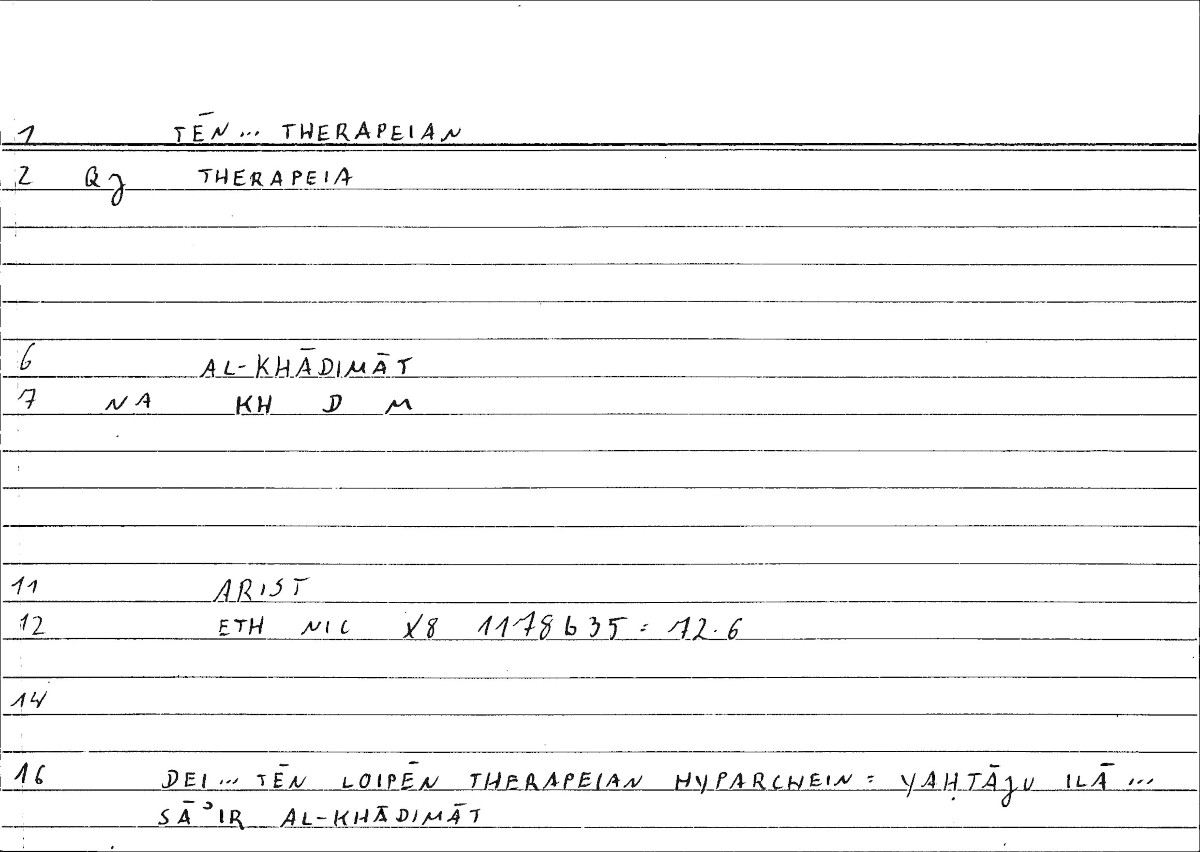 1 TĒN... THERAPEIAN
2 Qj THERAPEIA
6 AL-KHĀDIMĀT
7 NA KH D M
11 ARIST
12 ETH NIC X8 1178b35 = 72.6
14
16 DEI... TĒN LOIPĒN THERAPEIAN HYPARCHEIN = YAḤTĀJU ILĀ ...
SĀʾIR AL-KHĀDIMĀT